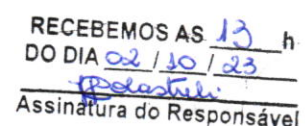 RECEBEMOS AS 13 h
DO DIA 02 / 10 / 23
Assinatura do Responsável